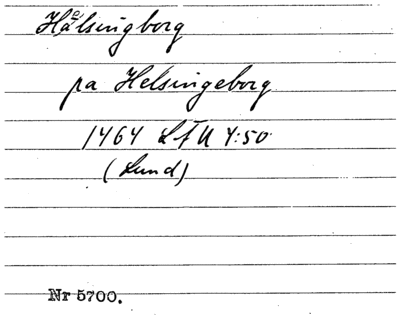 Hälsingborg
pa Helsingeborg
1464 LfU 4:50
(Lund)
Nr 5700.